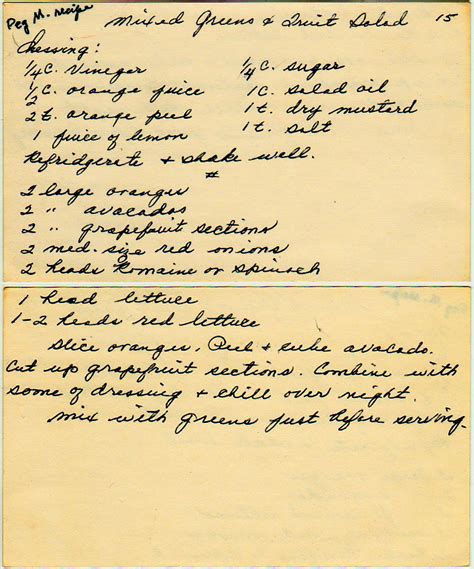 Peg M. recipe
Mixed Greens & Fruit Salad 15
Dressing:
1/4 c. vinegar 1/4 c. sugar
1/2 c. orange juice 1 c. salad oil
2 t. orange peel 1 t. dry mustard
1 juice of lemon 1 t. salt
Refridgerate & shake well.
#
2 large oranges
2 " avacados
2 " grapefruit sections
2 med. size red onions
2 heads Romaine or spinach
1 head lettuce
1-2 heads red lettuce
Slice oranges. Peel & cube avacado.
Cut up grapefruit sections. Combine with
soome of dressing & chill over night.
Mix with greens just before serving.